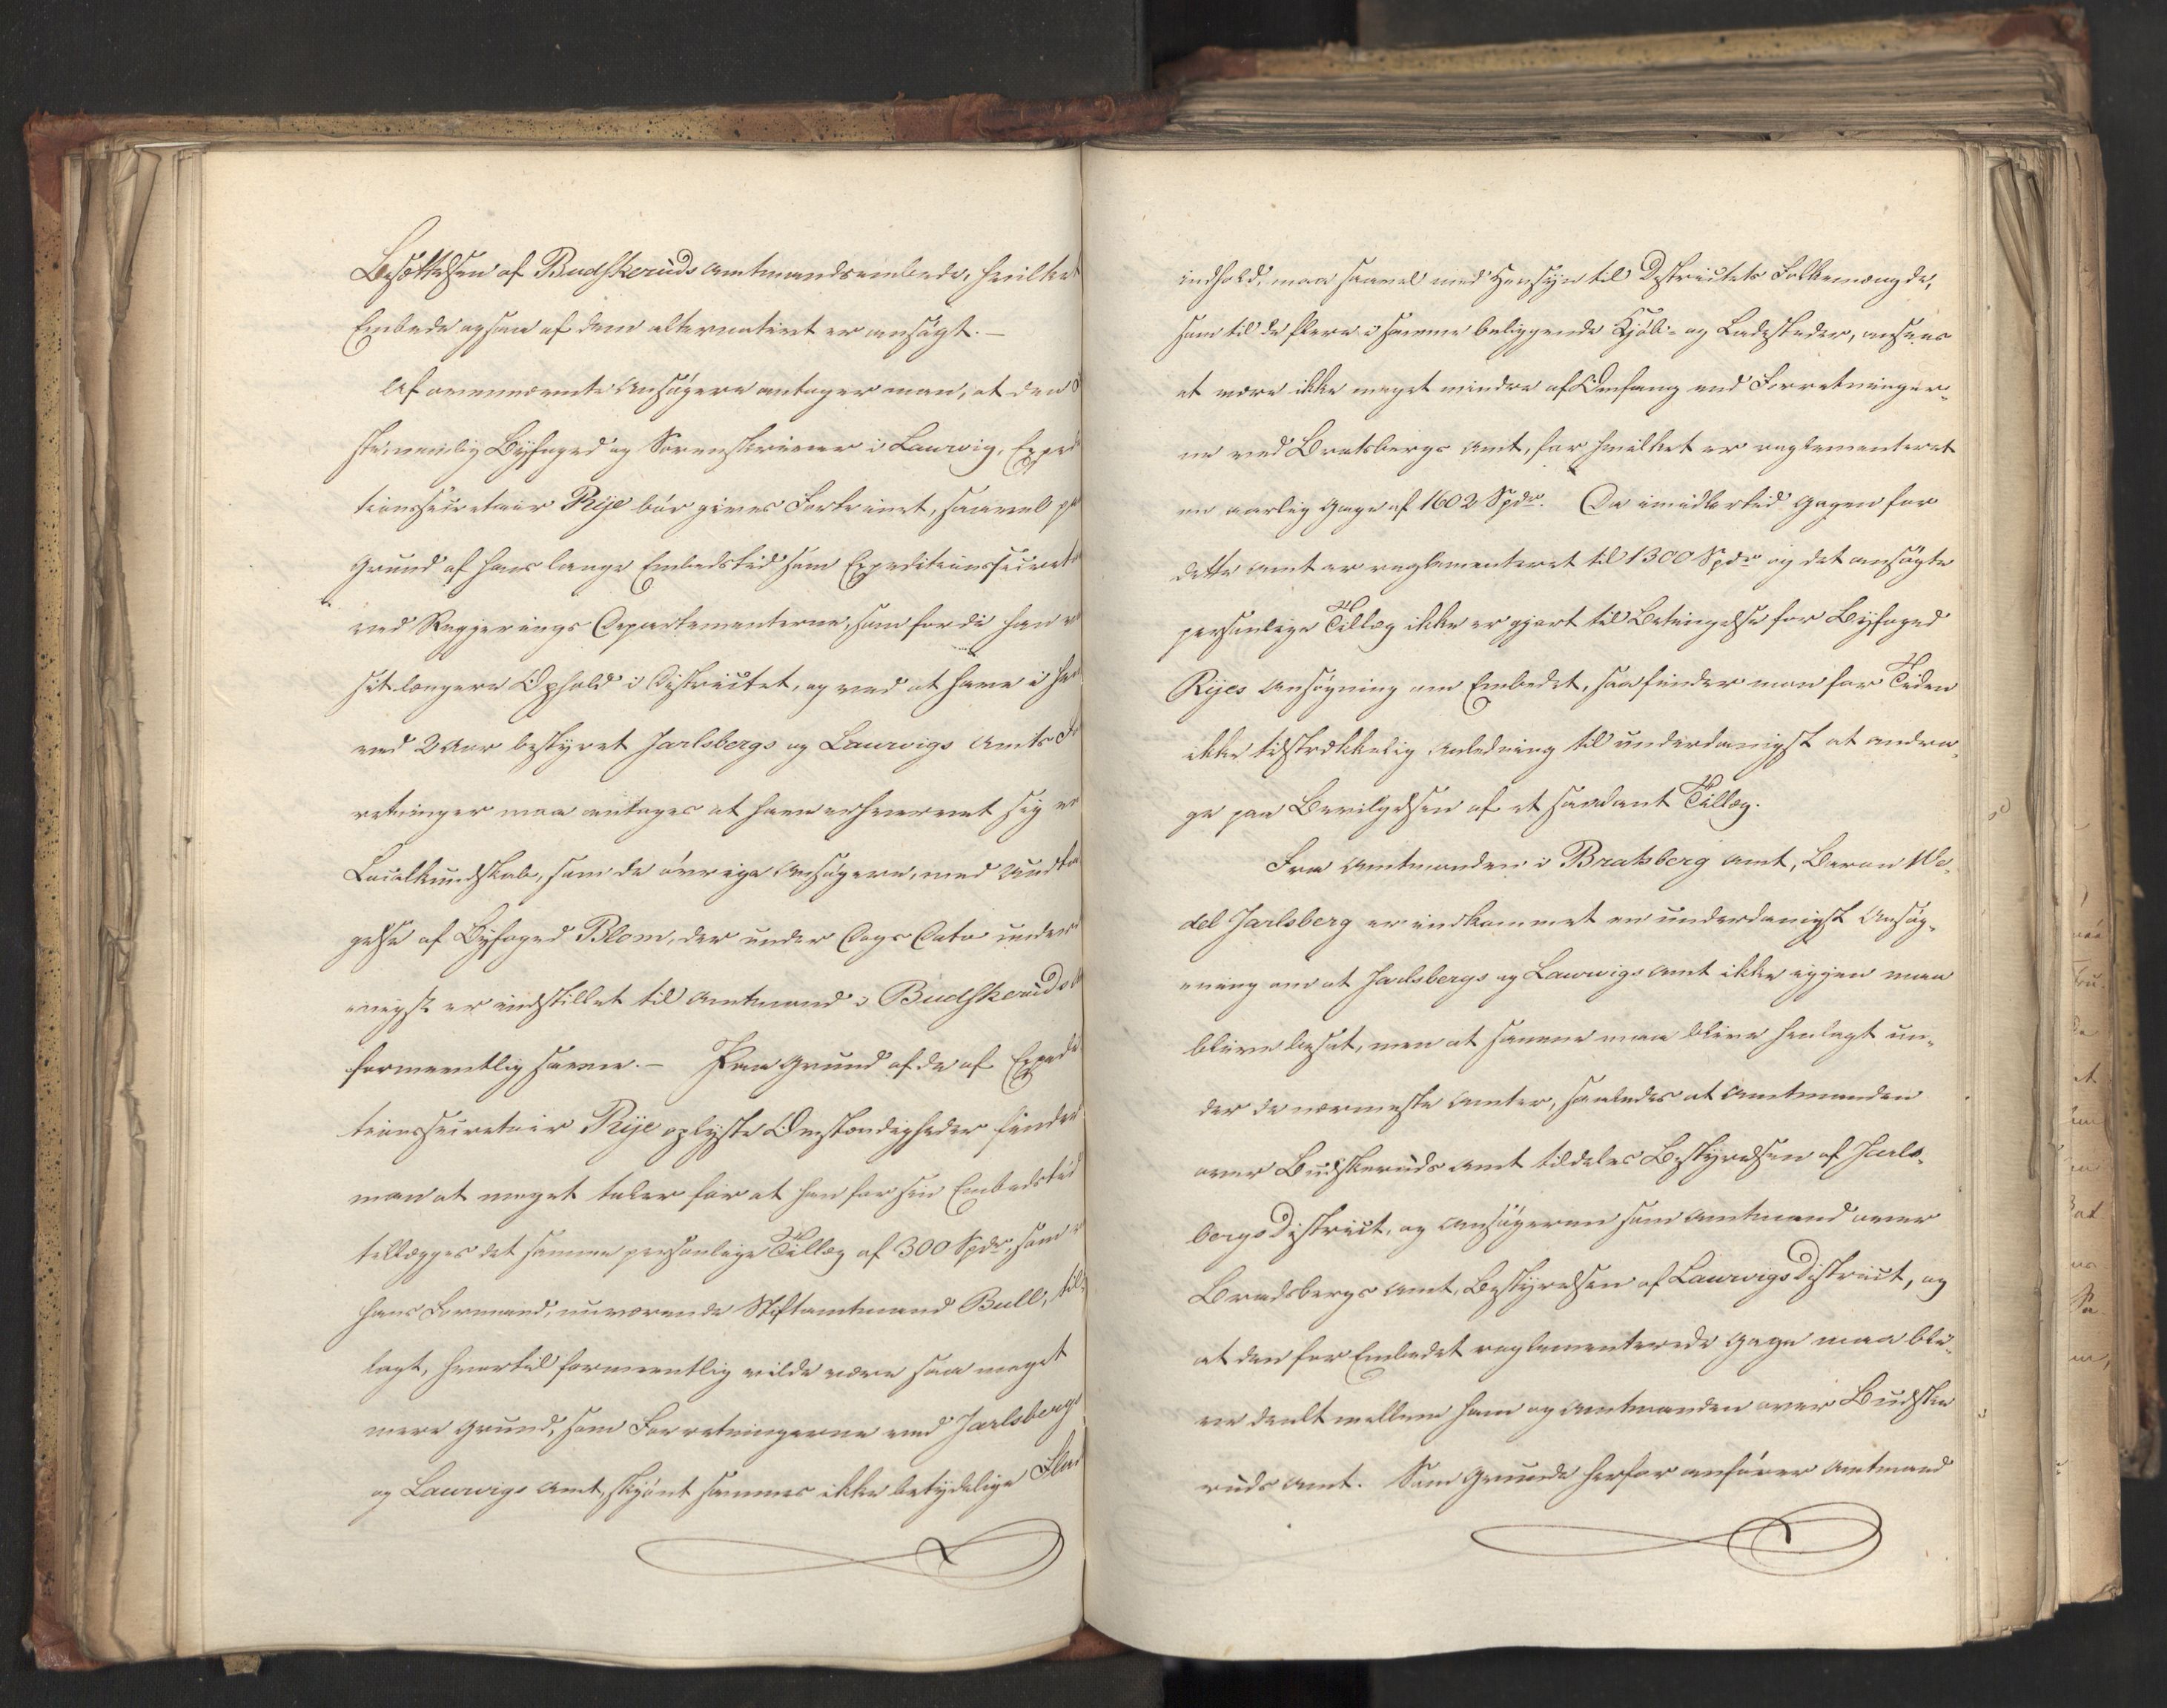 Besættelsen af Budskeruds Amtmandsembede, hvilket
Embede ogsaa af dem alternativt er ansøgt. —
Af ovennævnte Ansøgere antager man, at den
nemlig Byfoged og Sorenskriver i Laurvig, Expedi
tionssecretair Rye bør gives Fortrinet, saavel paa
Grund af hans lange Embedstid som Expeditionssecretair
ved Regjerings Departementerne, som fordi han ved
sit længere Ophold i Districtet, og ved at have i
2 Aar bestyret Jarlsbergs og Laurvigs Amts For
retninger maa antages at have erhvervet sig en
Localkundskab, som de øvrige Ansøgere, med Undta
gelse af Byfoged Blom, der under Dags Dato underd
anigst er indstillet til Amtmand i Budskeruds
formeentlig savne. — Paa Grund af de af Expedi
tionssecretair Rye oplyste Omstændigheder finder
man at meget taler for at han for sin Embedstid
tillægges det samme personlige Tillæg af 300 Spdr, som
hans Formand, nuværende Stiftamtmand Bull, til-
lagt, hvortil formeentlig vilde være saa meget
mere Grund, som Forretningerne ved Jarlsbergs
og Laurvigs Amt, skjønt sammes ikke betydelige Flade
indhold, maa saavel med Hensyn til Districtets Folkemængde,
som til de flere i samme beliggende Kjøb- og Ladesteder, ansees
at være ikke meget mindre af Omfang end Forretninger-
ne ved Bratsbergs Amt, for hvilket er reglementeret
en aarlig Gage af 1602 Spdr. Da imidlertid Gagen for
dette Amt er reglementeret til 1300 Spdr og det ansøgte
personlige Tillæg ikke er gjort til Betingelse for Byfoged
Ryes Ansøgning om Embedet, saa finder man for Tiden
ikke tilstrækkelig Anledning til underdanigst at andra-
ge paa Bevilgelsen af et saadant Tillæg.
Fra Amtmanden i Bratsberg Amt, Baron We-
del Jarlsberg er indkommet en underdanigst Ansøg-
ning om at Jarlsbergs og Laurvigs Amt ikke igjen maa
blive besat, men at samme maa blive henlagt un-
der de nærmeste Amter, saaledes at Amtmanden
over Budskeruds Amt tildeles Bestyrelsen af Jarls-
bergs District, og Ansøgeren som Amtmand over
Bradsbergs Amt, Bestyrelsen af Laurvigs District, og
at den for Embedet reglementerede Gage maa bli-
ve deelt mellem ham og Amtmanden over Budske
ruds Amt. Som Grunde herfor anfører Amtmand